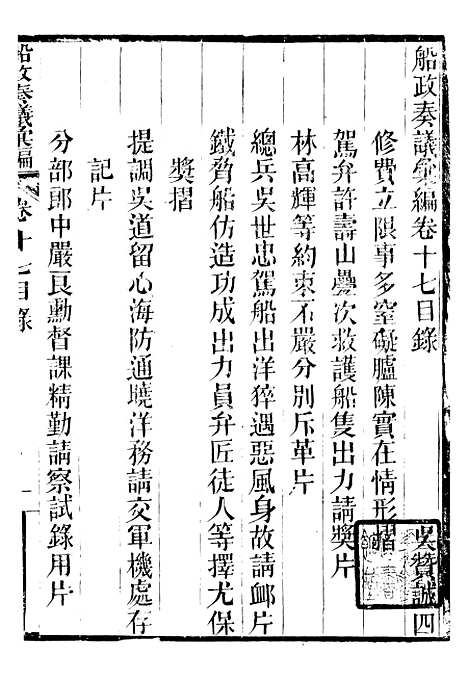 船政奏議彙編卷十七目錄
吳贊誠四
修費立限事多窒礙臚陳實在情形摺
駕弁許壽山疊次救護船隻出力請獎片
林高輝等約束不嚴分別斥革片
總兵吳世忠駕船出洋猝遇惡風身故請卹片
鐵脅船仿造功成出力員弁匠徒人等擇尤保
獎摺
提調吳道留心海防通曉洋務請交軍機處存
記片
分部郎中嚴良勳督課精勤請察試錄用片
船政奏議彙編
卷十七目錄
一